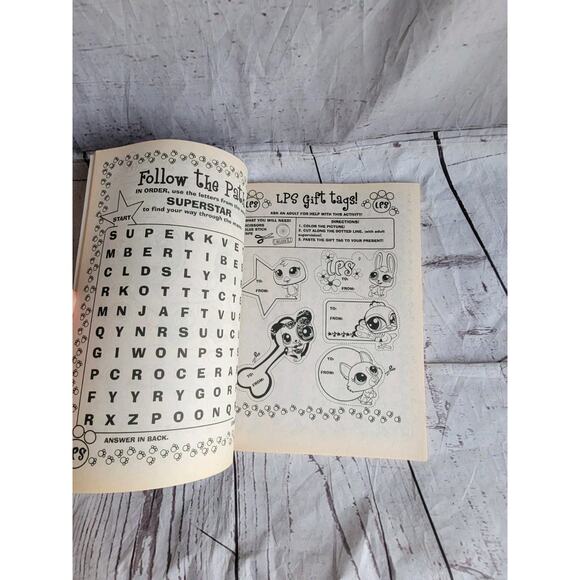 Follow the Pat
IN ORDER, use the letters from the
SUPERSTAR
to find your way through the
START
S U P E K K V E
M B E R T I B E
C L D S L Y P I
R K O T T T C T
M N J A F T V U
Q Y N R S U U C
G I W O N P S T
P C R O C E R A
F Y Y R Y G O R
R X Z P O O N Q
ANSWER IN BACK.
LPS
LPS
LPS Gift tags!
LPS
ASK AN ADULT FOR HELP WITH THIS ACTIVITY!
YOU NEED:
GLUE STICK
DIRECTIONS:
1. COLOR THE PICTURE!
2. CUT ALONG THE DOTTED LINE. (with adult supervision)
3. PASTE THE GIFT TAG TO YOUR PRESENT!
TO:
FROM:
LPS
TO:
FROM:
TO:
FROM:
TO:
FROM:
TO:
FROM: